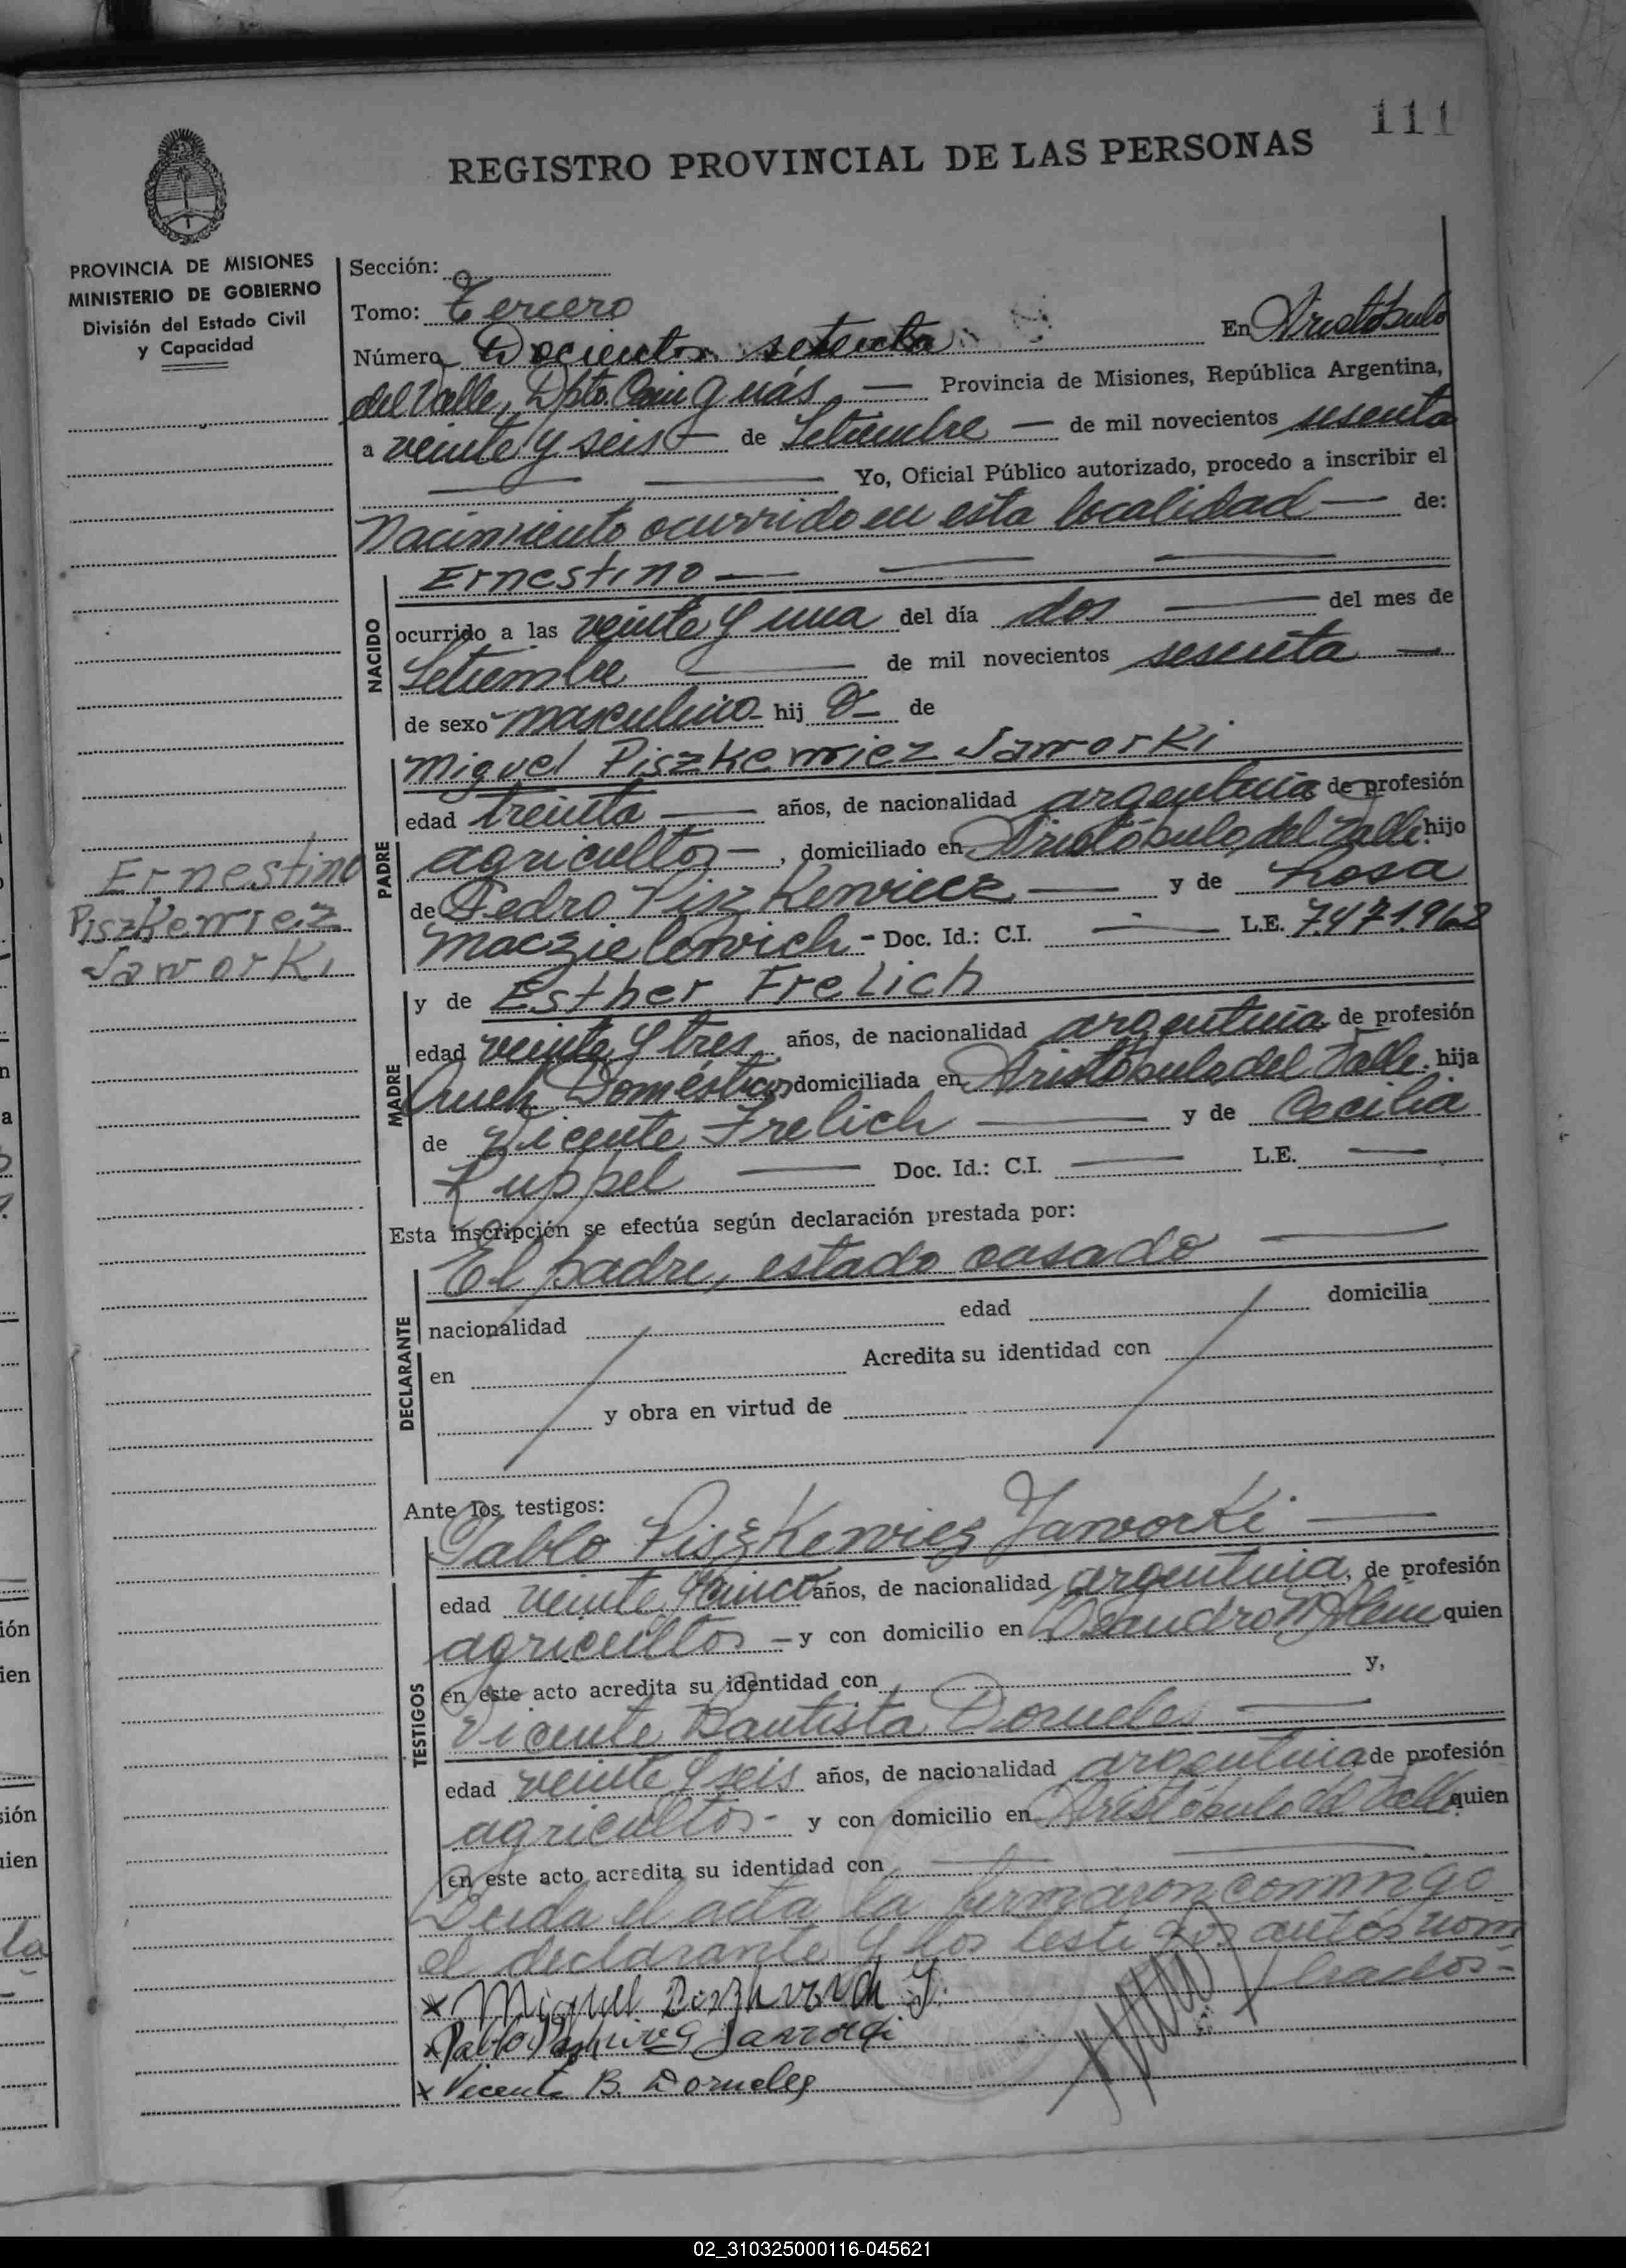 111
REGISTRO PROVINCIAL DE LAS PERSONAS
PROVINCIA DE MISIONES
MINISTERIO DE GOBIERNO
División del Estado Civil
y Capacidad
Sección:
Tomo: Tercero
Número Docientos setenta En Aristóbulo
del Valle, Dpto. Cainguás — Provincia de Misiones, República Argentina,
a veinte y seis — de Setiembre — de mil novecientos sesenta
Yo, Oficial Público autorizado, procedo a inscribir el
Nacimiento ocurrido en esta localidad — de:
NACIDO
Ernestino —
ocurrido a las veinte y una del día dos — del mes de
Setiembre — de mil novecientos sesenta —
de sexo masculino - hij o - de
PADRE
Miguel Piszkewiez Jaworki
edad treinta — años, de nacionalidad argentina de profesión
agricultor —, domiciliado en Aristóbulo del Valle. hijo
de Pedro Piszkewiecz — y de Rosa
Maczielowich - Doc. Id.: C.I. — L.E. 7.471.968
Ernestino
Piszkewiez
Jaworki
MADRE
y de Esther Frelich
edad veinte y tres años, de nacionalidad argentina de profesión
Queh. Domésticos domiciliada en Aristóbulo del Valle. hija
de Vicente Frelich — y de Cecilia
Ruppel — Doc. Id.: C.I. — L.E. —
Esta inscripción se efectúa según declaración prestada por:
DECLARANTE
El padre, estado casado —
nacionalidad edad domicilia
en Acredita su identidad con
y obra en virtud de
Ante los testigos:
TESTIGOS
Pablo Piszkewiez Jaworki —
edad veinte y cinco años, de nacionalidad argentina, de profesión
agricultor — y con domicilio en Leandro N. Alem quien
en este acto acredita su identidad con y,
Vicente Bautista Dorneles —
edad veinte y seis años, de nacionalidad argentina de profesión
agricultor - y con domicilio en Aristóbulo del Valle quien
en este acto acredita su identidad con —
Leida el acta la firmaron conmigo
el declarante y los testigos antes nom
brados -
x Miguel J.
x Pablo
x Vicente B. Dorneles
02_310325000116-045621